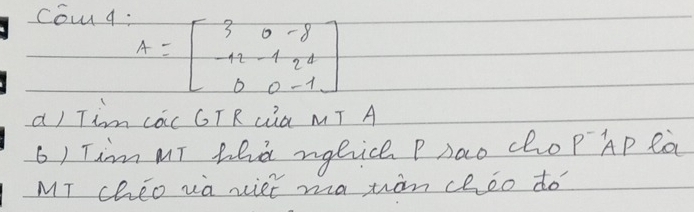 Câu 4:
A = [ 3 0 -8
-12 -1 24
0 0 -1 ]
a) Tìm các GTR của MT A
b) Tìm MT khả nghịch P sao cho P⁻¹AP là
MT chéo và viết ma trận chéo đó